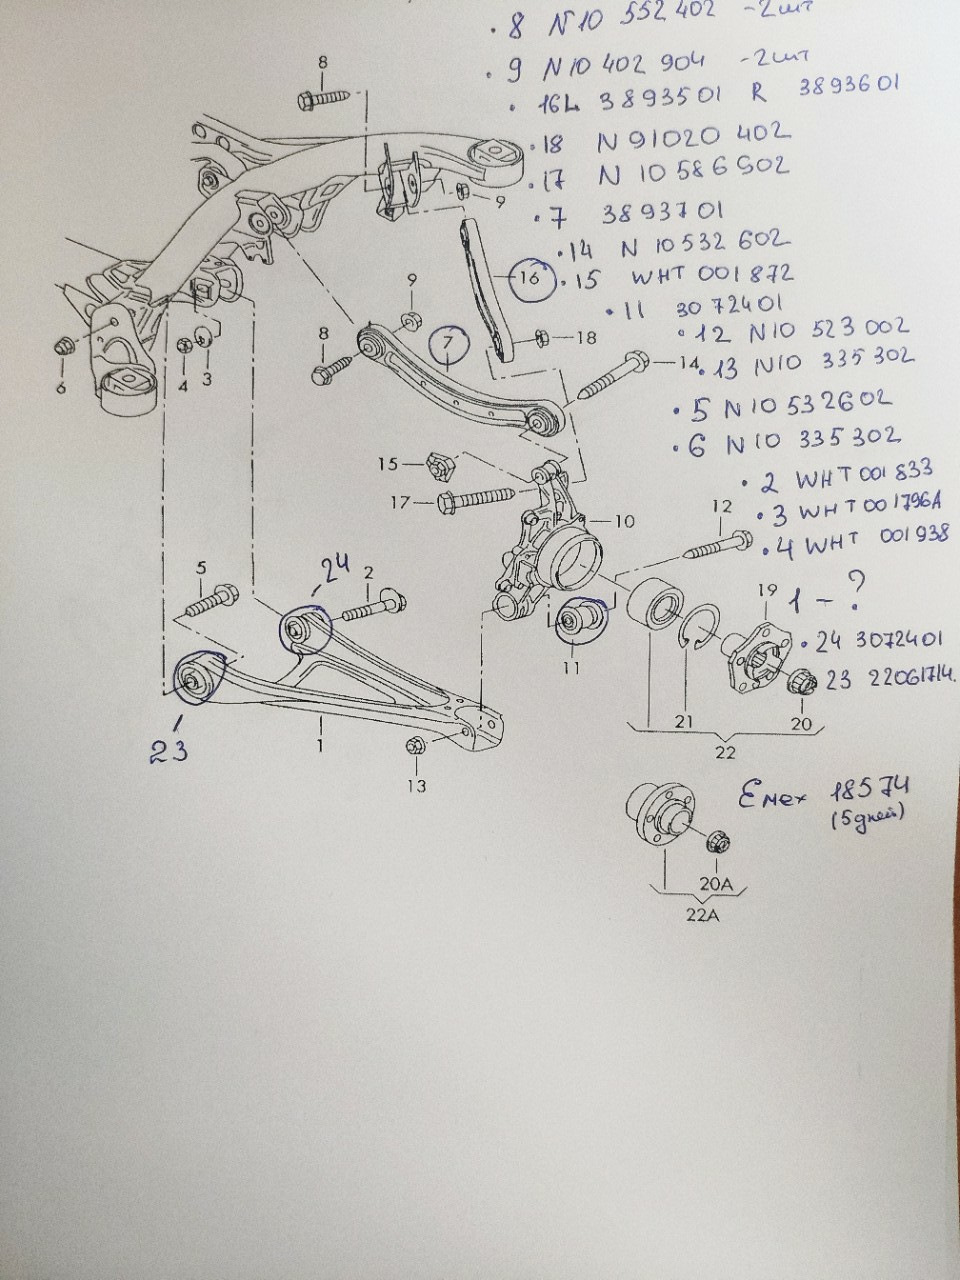 · 8 N10 552 402 - 2шт
· 9 N10 402 904 - 2шт
· 16L 3893501 R 3893601
· 18 N 91020 402
· 17 N 10 586 502
· 7 3893701
· 14 N 10 532 602
· 15 WHT 001 872
· 11 3072401
· 12 N10 523 002
· 13 N10 335 302
· 5 N10 532602
· 6 N10 335302
· 2 WHT 001 833
· 3 WHT 001796A
· 4 WHT 001938
1 - ?
· 24 3072401
23 22061714.
Емех 18574
(5 дней)
8
9
16
9
7
8
18
14
6
4
3
15
17
10
12
5
24
2
19
11
23
1
21
20
22
13
20A
22A